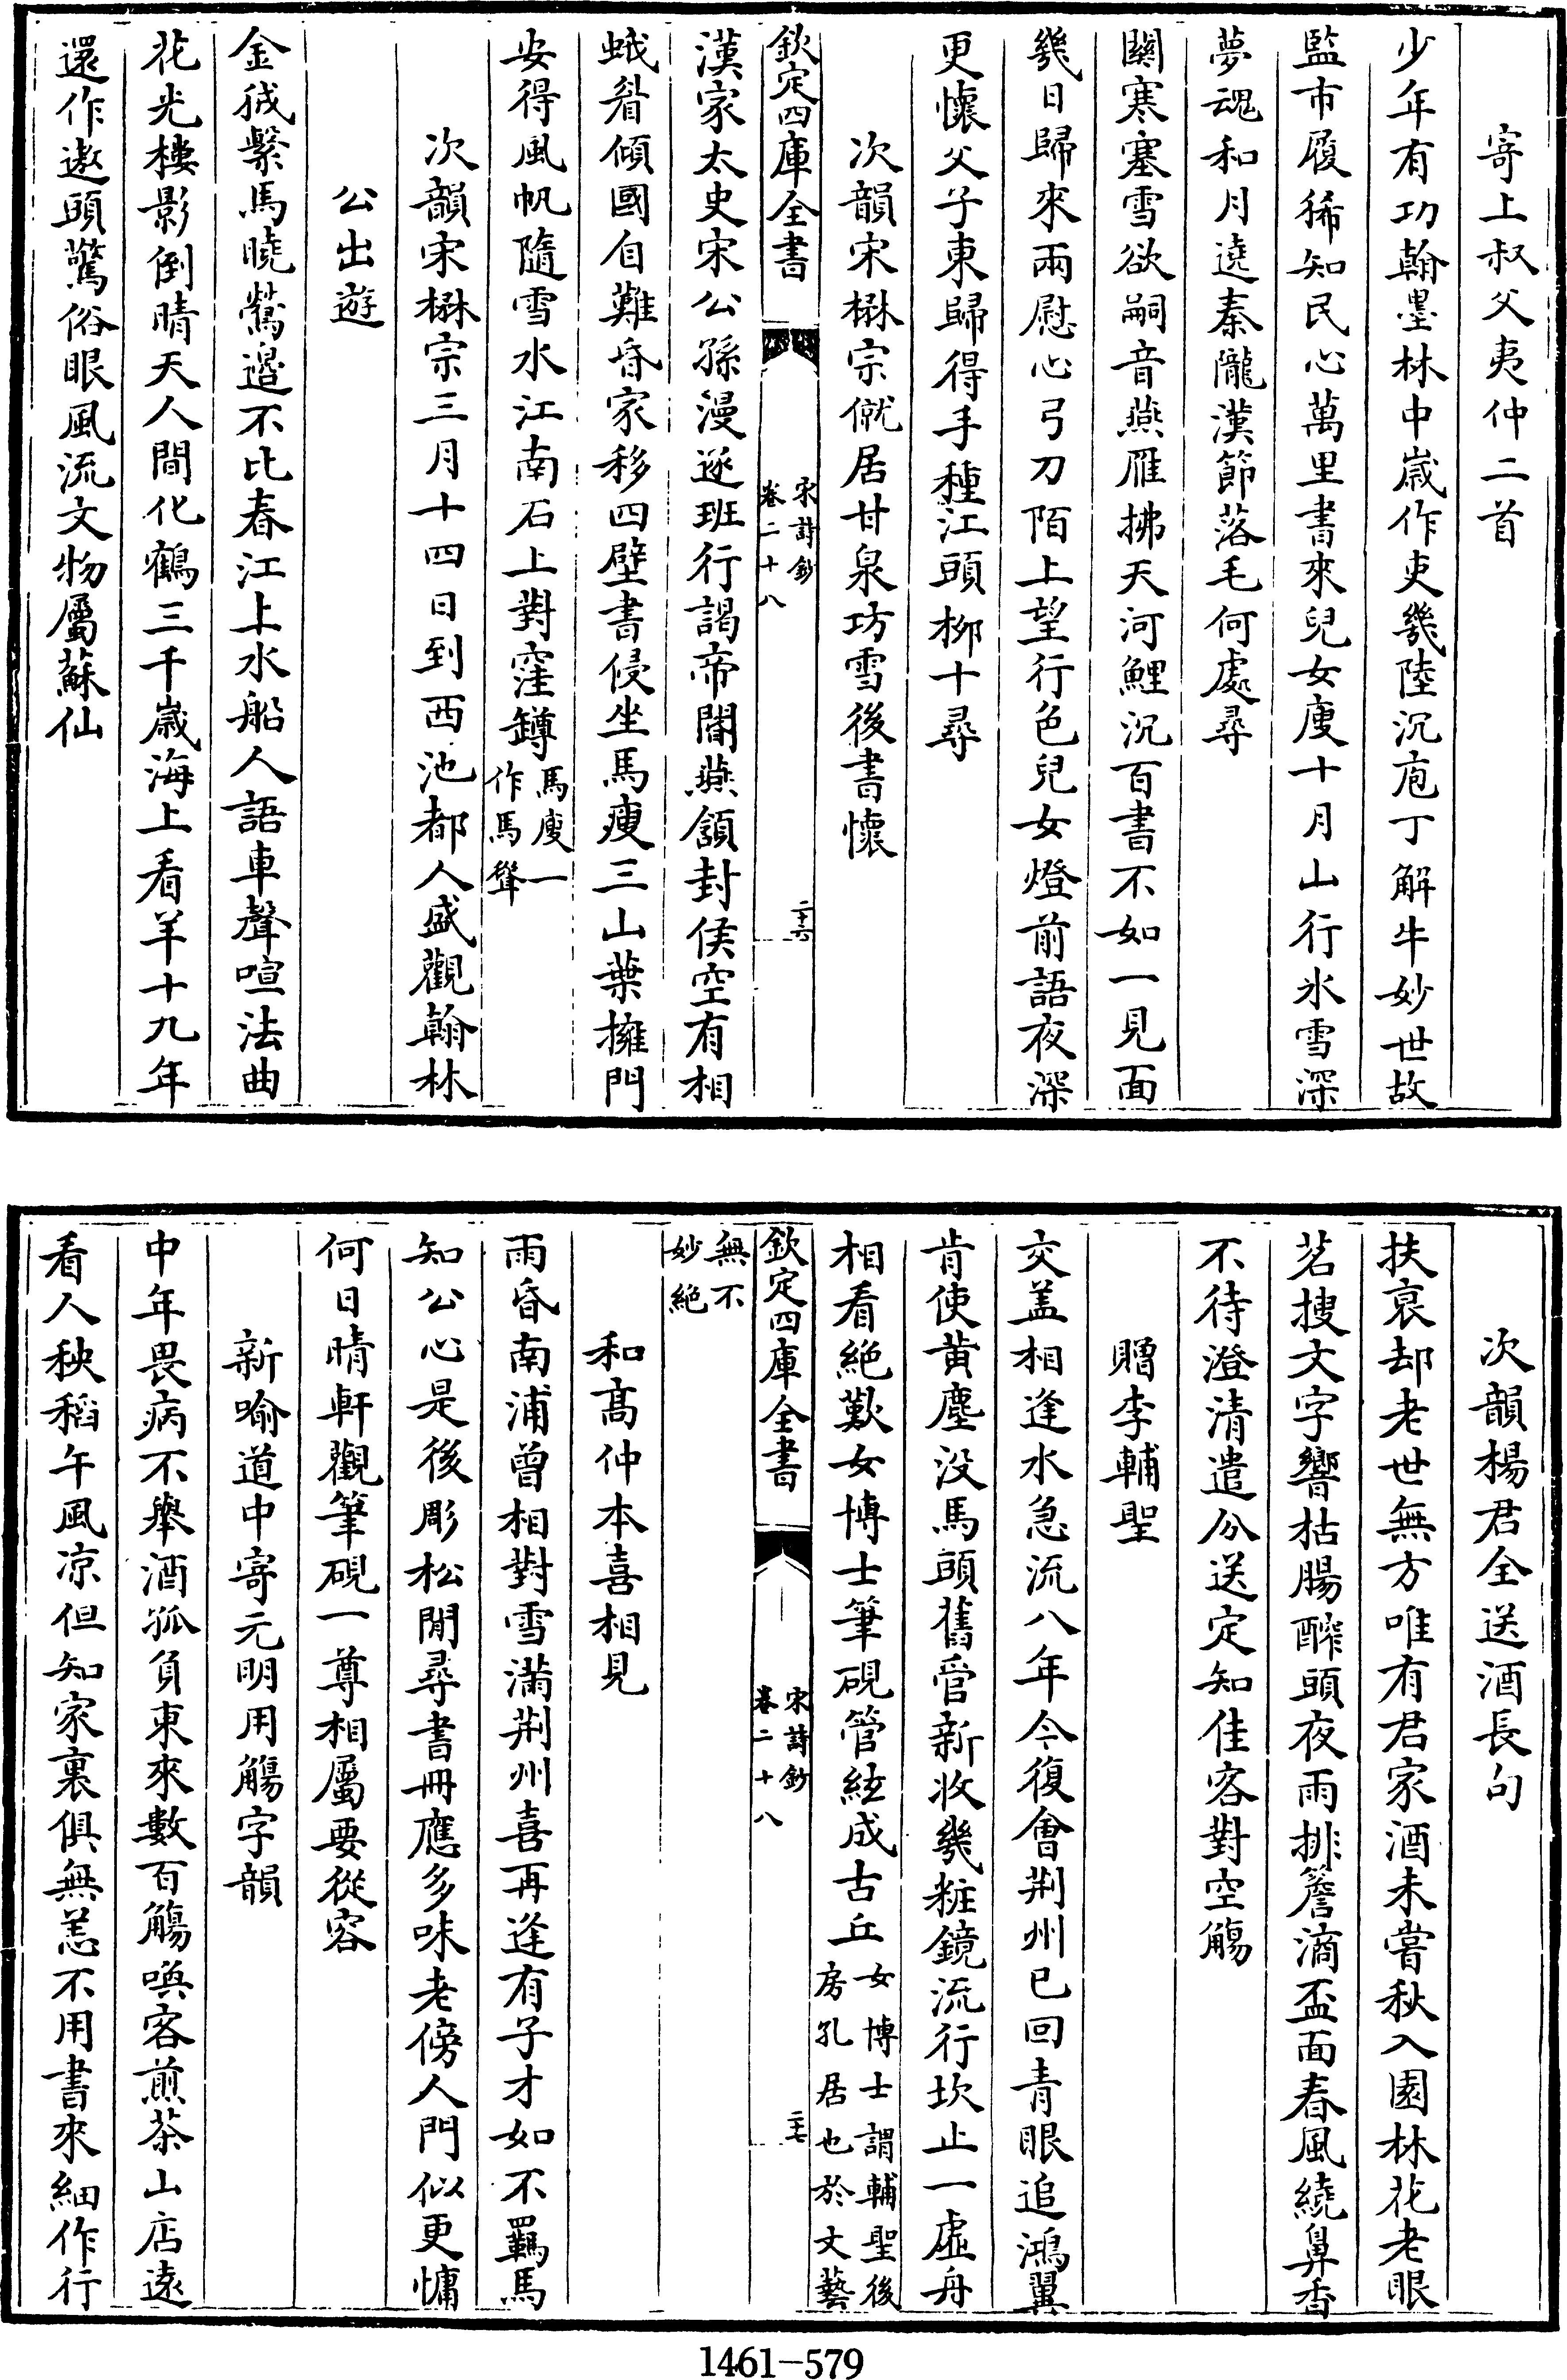 寄上叔父夷仲二首
少年有功翰墨林中歳作吏幾陸沉庖丁解牛妙世故
監市履豨知民心萬里書來兒女瘦十月山行氷雪深
夢魂和月遶秦隴漢節落毛何處尋
關寒塞雪欲嗣音燕雁拂天河鯉沉百書不如一見面
幾日歸來兩慰心弓刀陌上望行色兒女燈前語夜深
更懷父子東歸得手種江頭栁十尋
次韻宋楙宗僦居甘泉坊雪後書懷
欽定四庫全書
宋詩鈔
卷二十八
二十六
漢家太史宋公孫漫逐班行謁帝閽燕頷封侯空有相
蛾眉傾國自難昏家移四壁書侵坐馬瘦三山葉擁門
安得風帆隨雪水江南石上對窪罇馬瘦一作馬聳
次韻宋楙宗三月十四日到西池都人盛觀翰林
公出遊
金狨繫馬曉鶯邉不比春江上水船人語車聲喧法曲
花光樓影倒晴天人間化鶴三千歳海上看羊十九年
還作遨頭驚俗眼風流文物屬蘇仙
次韻楊君全送酒長句
扶衰却老世無方唯有君家酒未嘗秋入園林花老眼
茗搜文字響枯腸醡頭夜雨排簷滴盃面春風繞鼻香
不待澄清遣分送定知佳客對空觴
贈李輔聖
交盖相逢水急流八年今復會荆州已回青眼追鴻翼
肯使黄塵没馬頭舊管新收幾粧鏡流行坎止一虛舟
相看絶歎女博士筆硯管絃成古丘女博士謂輔聖後房孔居也於文藝
欽定四庫全書
宋詩鈔
卷二十八
二十七
無不妙絶
和髙仲本喜相見
雨昏南浦曾相對雪滿荆州喜再逢有子才如不羈馬
知公心是後彫松閒尋書冊應多味老傍人門似更慵
何日晴軒觀筆硯一尊相屬要從容
新喻道中寄元明用觴字韻
中年畏病不舉酒孤負東來數百觴喚客煎茶山店逺
看人秧稻午風凉但知家裏俱無恙不用書來細作行
1461-579